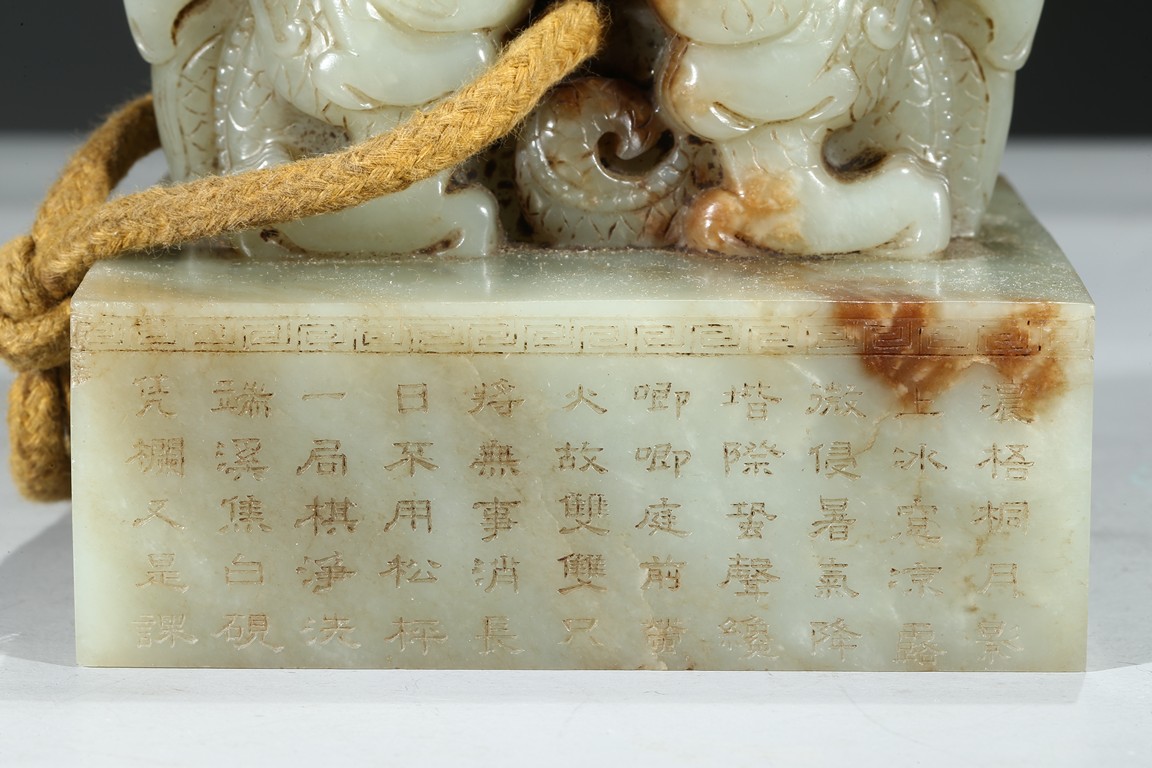 濃梧桐月影
上冰寬涼露
微侵暑氣降
堦際蛩聲纔
唧唧庭前螢
火故雙雙只
將無事消長
日不用松枰
一局棋淨洗
端溪焦白硯
凭欄又是課